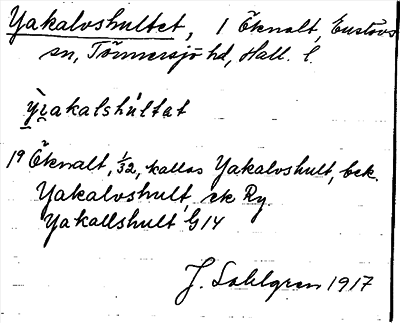 Yakalvshultet, 1 Öknalt, Enslövs
sn, Tönnersjö hd, Hall. l.
yzakalshúltat
19 Öknalt, 1/32, kallas Yakalvshult, bek.
Yakalvshult, ek Ry.
Yakallshult G 14
J. Sahlgren 1917